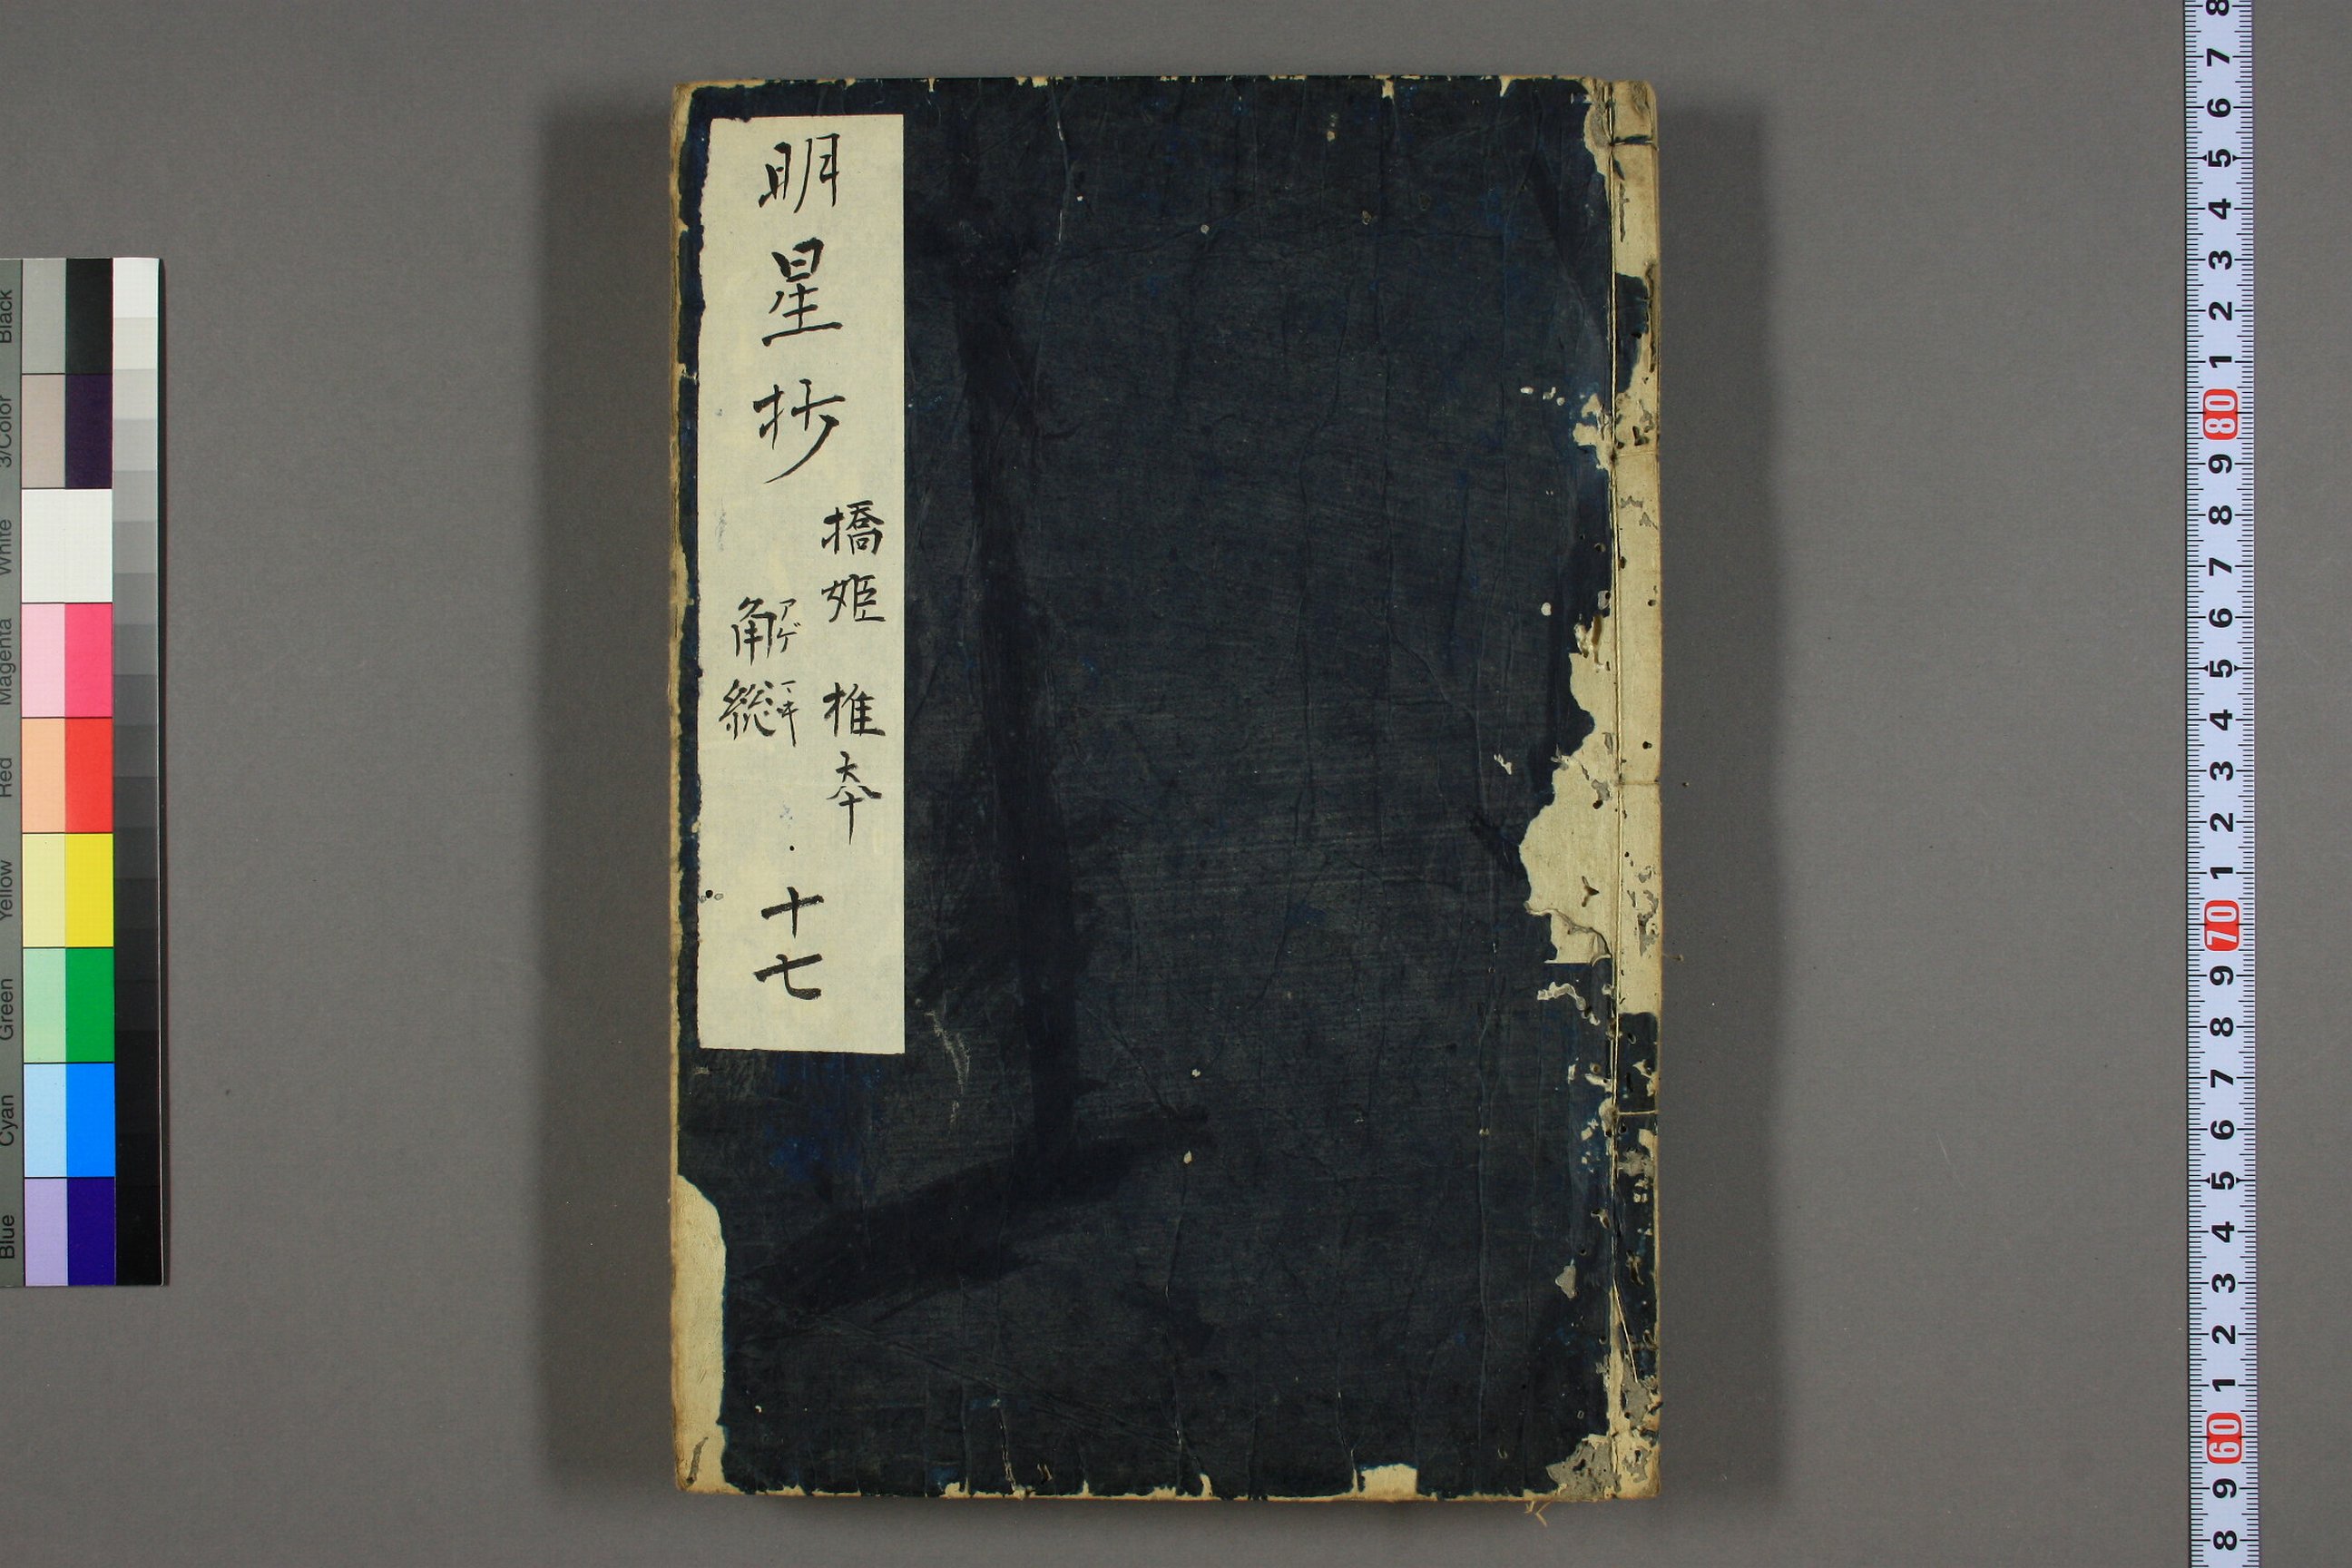 明星抄
橋姫 椎夲
アゲマキ
角総
十七
Black
3/Color
White
Magenta
Red
Yellow
Green
Cyan
Blue
8 7 6 5 4 3 2 1 80 9 8 7 6 5 4 3 2 1 70 9 8 7 6 5 4 3 2 1 60 9 8